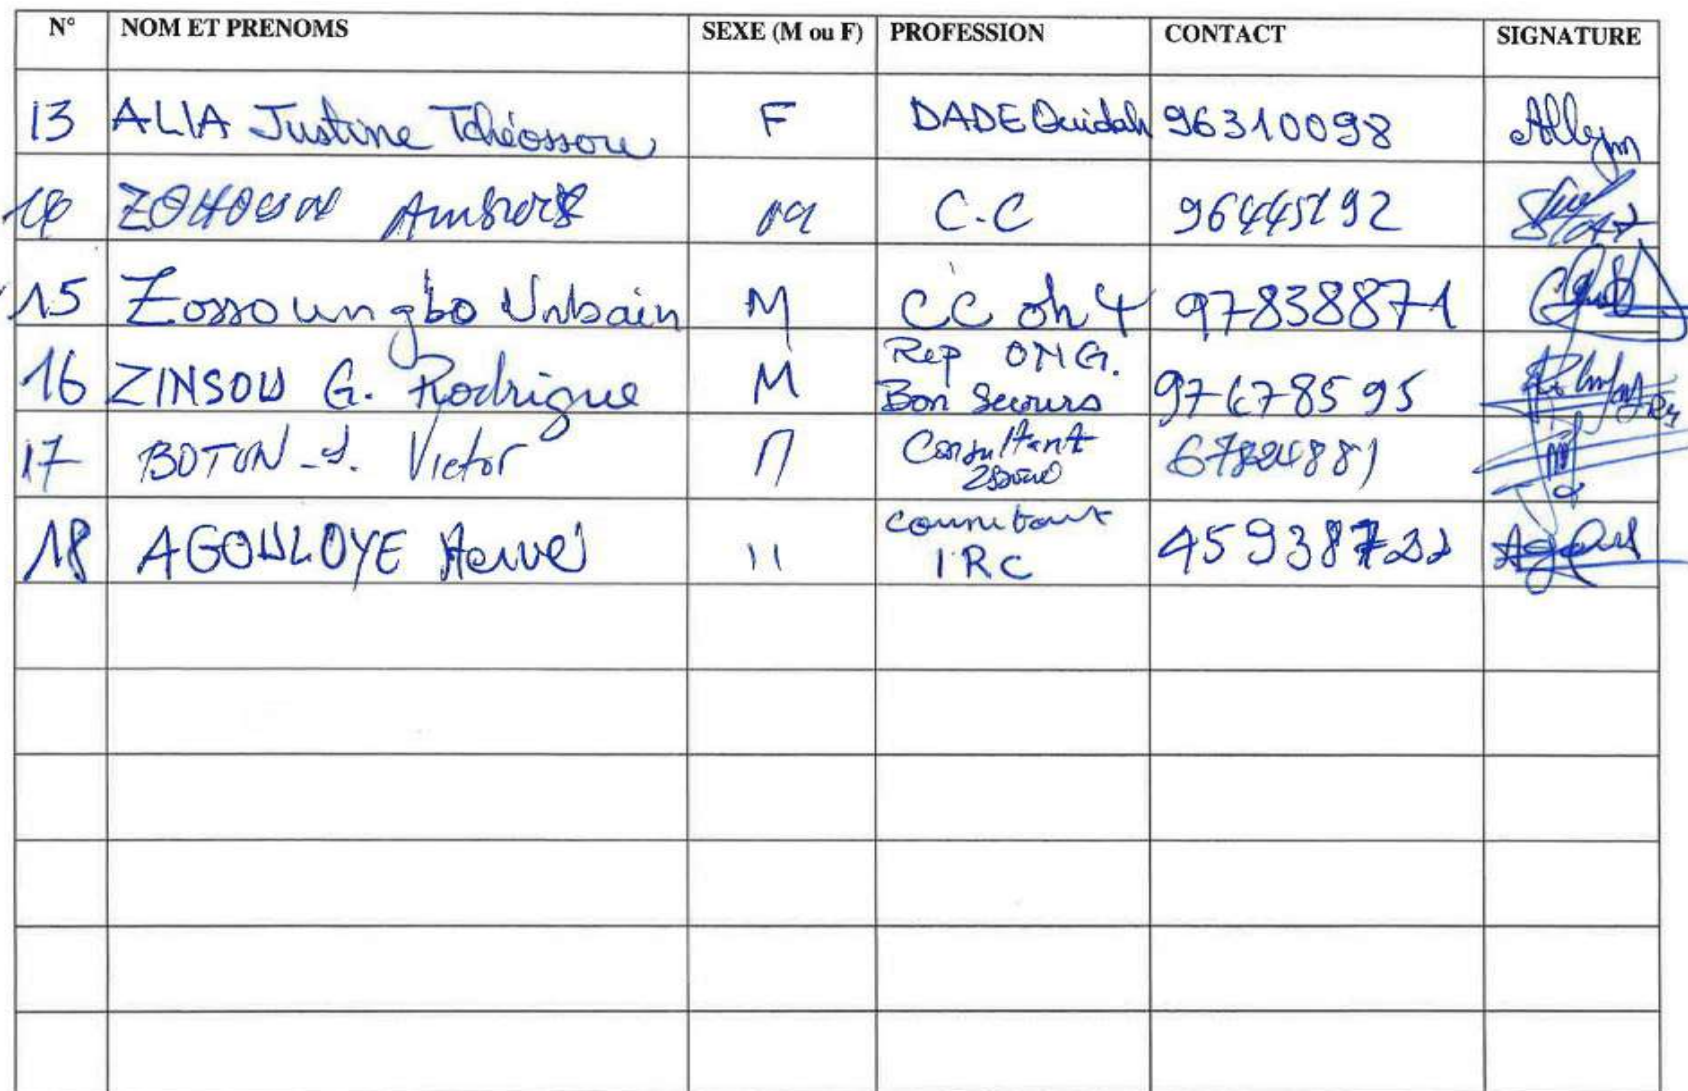 N° NOM ET PRENOMS SEXE (M ou F) PROFESSION CONTACT SIGNATURE
13 ALIA Justine Tchéossou F DADE Ouidah 96310098
ZOHOUN M C.C 96445192
15 Zossoungbo Urbain M CC oh 4 97838871
16 ZINSOU G. Rodrigue M Rep ONG.
Bon Secours 97678595
17 BOTON Victor M Consultant
18 AGOULOYE Hervé 11
IRC 45938722